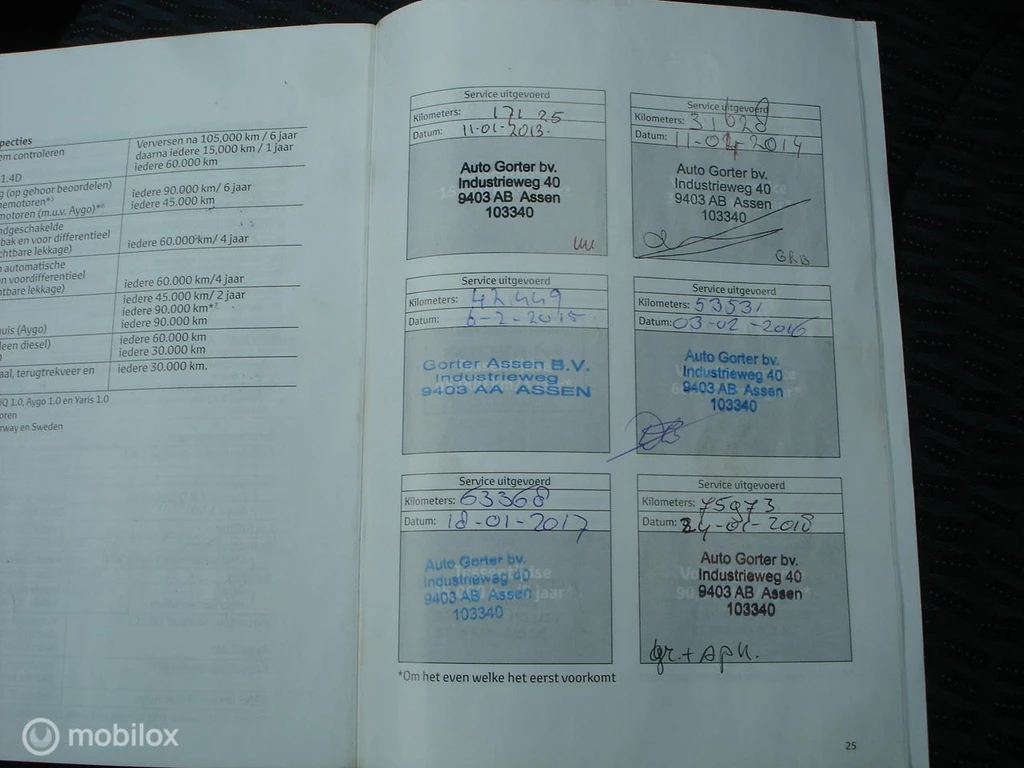 pecties
em controleren
1.4D
g (op gehoor beoordelen)
nemotoren*5
motoren (m.u.v. Aygo)*6
ndgeschakelde
bak en voor differentieel
chtbare lekkage)
n automatische
en voordifferentieel
htbare lekkage)
uis (Aygo)
leen diesel)
aal, terugtrekveer en
Verversen na 105.000 km / 6 jaar
daarna iedere 15.000 km / 1 jaar
iedere 60.000 km
iedere 90.000 km/ 6 jaar
iedere 45.000 km
iedere 60.000 km/ 4 jaar
iedere 60.000 km/4 jaar
iedere 45.000 km/ 2 jaar
iedere 90.000 km*2
iedere 90.000 km
iedere 60.000 km
iedere 30.000 km
iedere 30.000 km.
iQ 1.0, Aygo 1.0 en Yaris 1.0
oren
rway en Sweden
Service uitgevoerd
Kilometers: 17125
Datum: 11-01-2013.
Auto Gorter bv.
Industrieweg 40
9403 AB Assen
103340
Service uitgevoerd
Kilometers: 31628
Datum: 11-02-2014
Auto Gorter bv.
Industrieweg 40
9403 AB Assen
103340
GRB
Service uitgevoerd
Kilometers: 42449
Datum: 6-2-2015
Gorter Assen B.V.
Industrieweg
9403 AA ASSEN
Service uitgevoerd
Kilometers: 53531
Datum: 03-02-2016
Auto Gorter bv.
Industrieweg 40
9403 AB Assen
103340
Service uitgevoerd
Kilometers: 63368
Datum: 18-01-2017
Auto Gorter bv.
Industrieweg 40
9403 AB Assen
103340
Service uitgevoerd
Kilometers: 75973
Datum: 24-01-2018
Auto Gorter bv.
Industrieweg 40
9403 AB Assen
103340
gr. + APK.
*Om het even welke het eerst voorkomt
25
mobilox